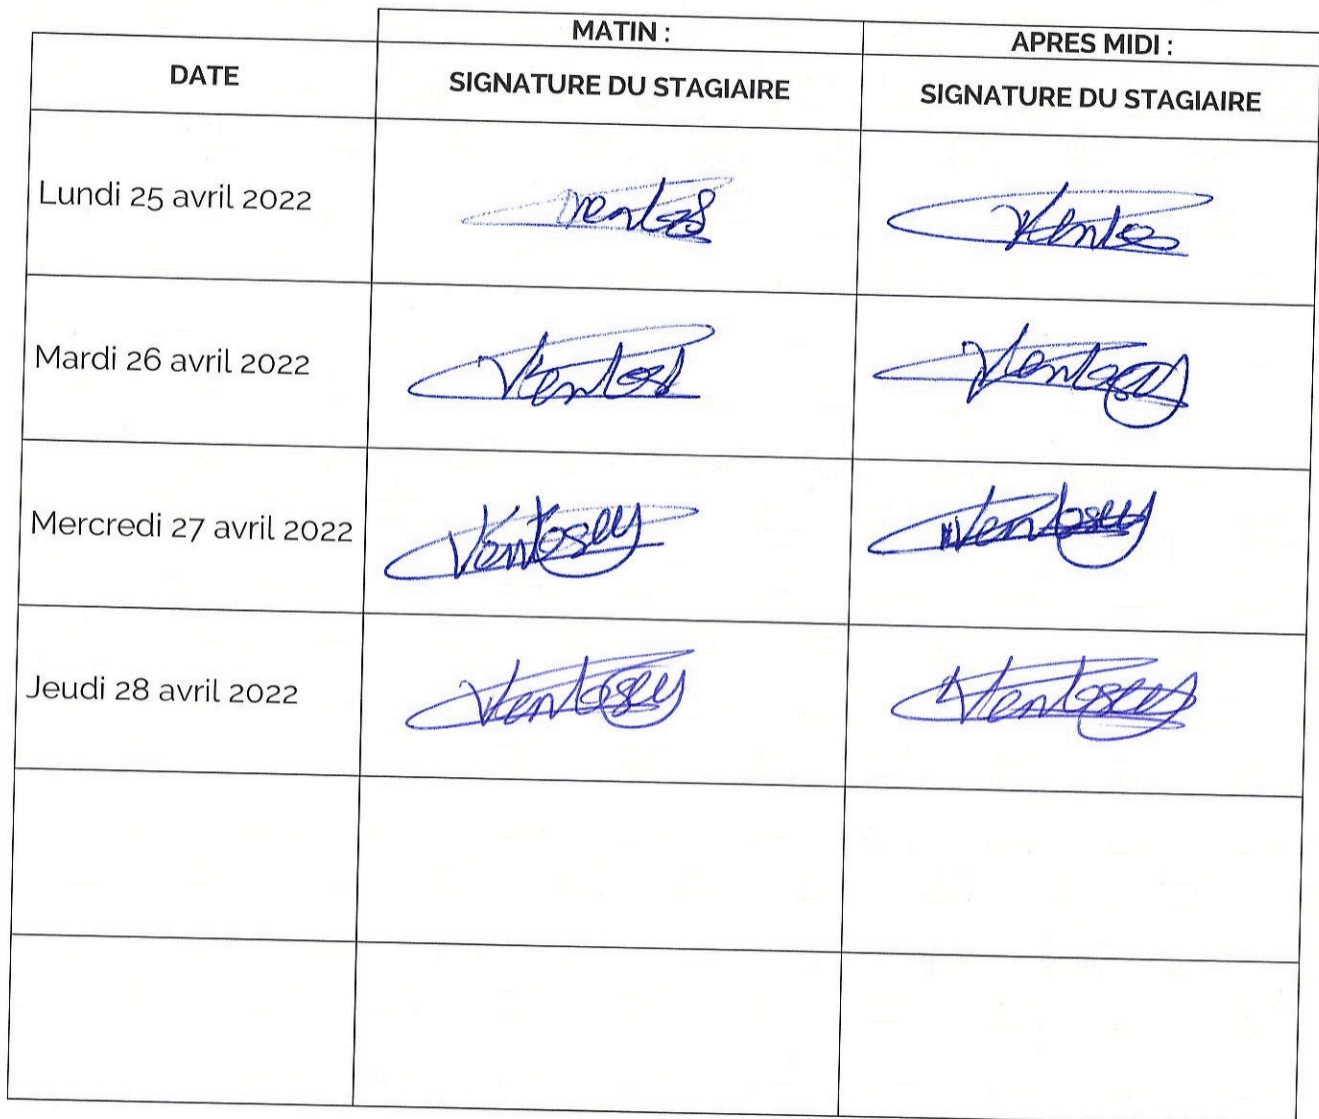 MATIN :
APRES MIDI :
DATE
SIGNATURE DU STAGIAIRE
SIGNATURE DU STAGIAIRE
Lundi 25 avril 2022
Mardi 26 avril 2022
Mercredi 27 avril 2022
Jeudi 28 avril 2022